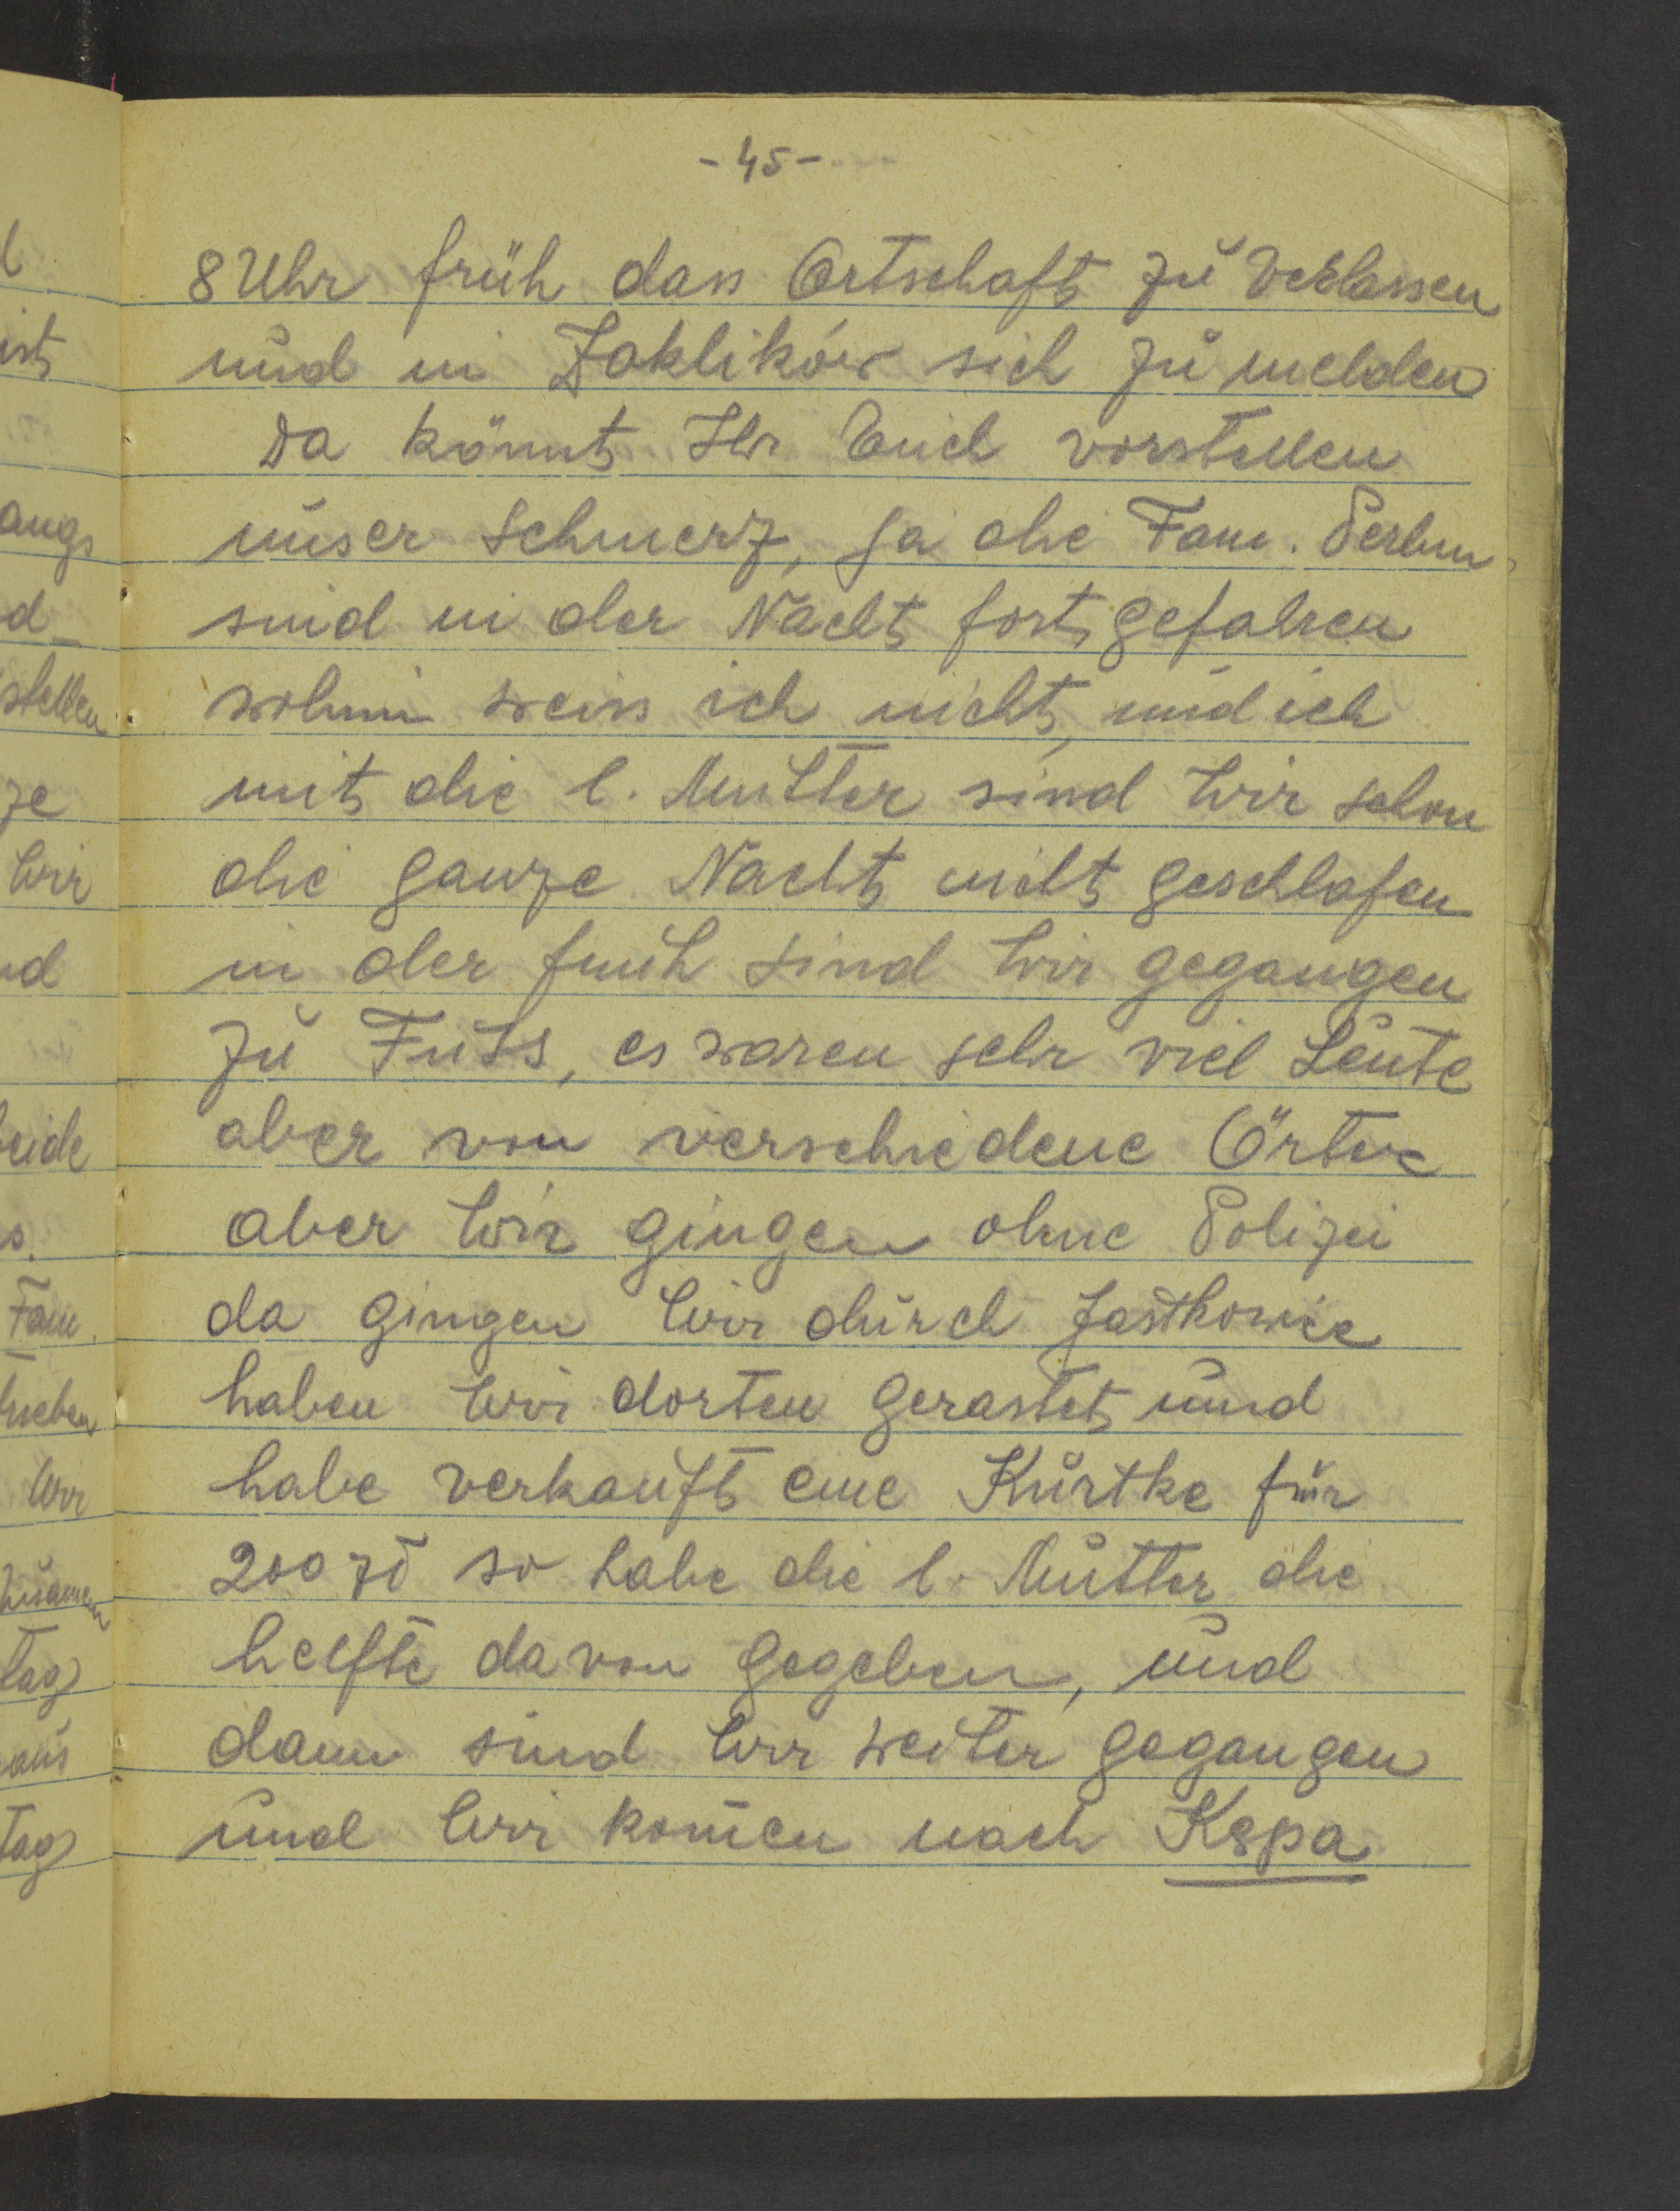 - 45 -
8 Uhr früh dass Ortschaft zu Verlassen
und in Zaklików sich zu melden
Da könnt Ihr Euch vorstellen
unser Schmerz, ja die Fam.
sind in der Nacht fortgefahren
wohin weiss ich nicht, und ich
mit die l. Mutter sind wir schon
die ganze Nacht nicht geschlafen
in der früh sind wir gegangen
zu Fuss, es waren sehr viel Leute
aber von verschiedene Örter
aber wir gingen ohne Polizei
da gingen wir durch Jastkowice
haben wir dorten gerastet und
habe verkauft eine Kurtke für
200 zł so habe die l. Mutter die
helfte davon gegeben, und
dann sind wir weiter gegangen
und wir komen nach Kępa
ist
d
stellen
ze
wir
eide
Fam.
wir
tag
aus
tag